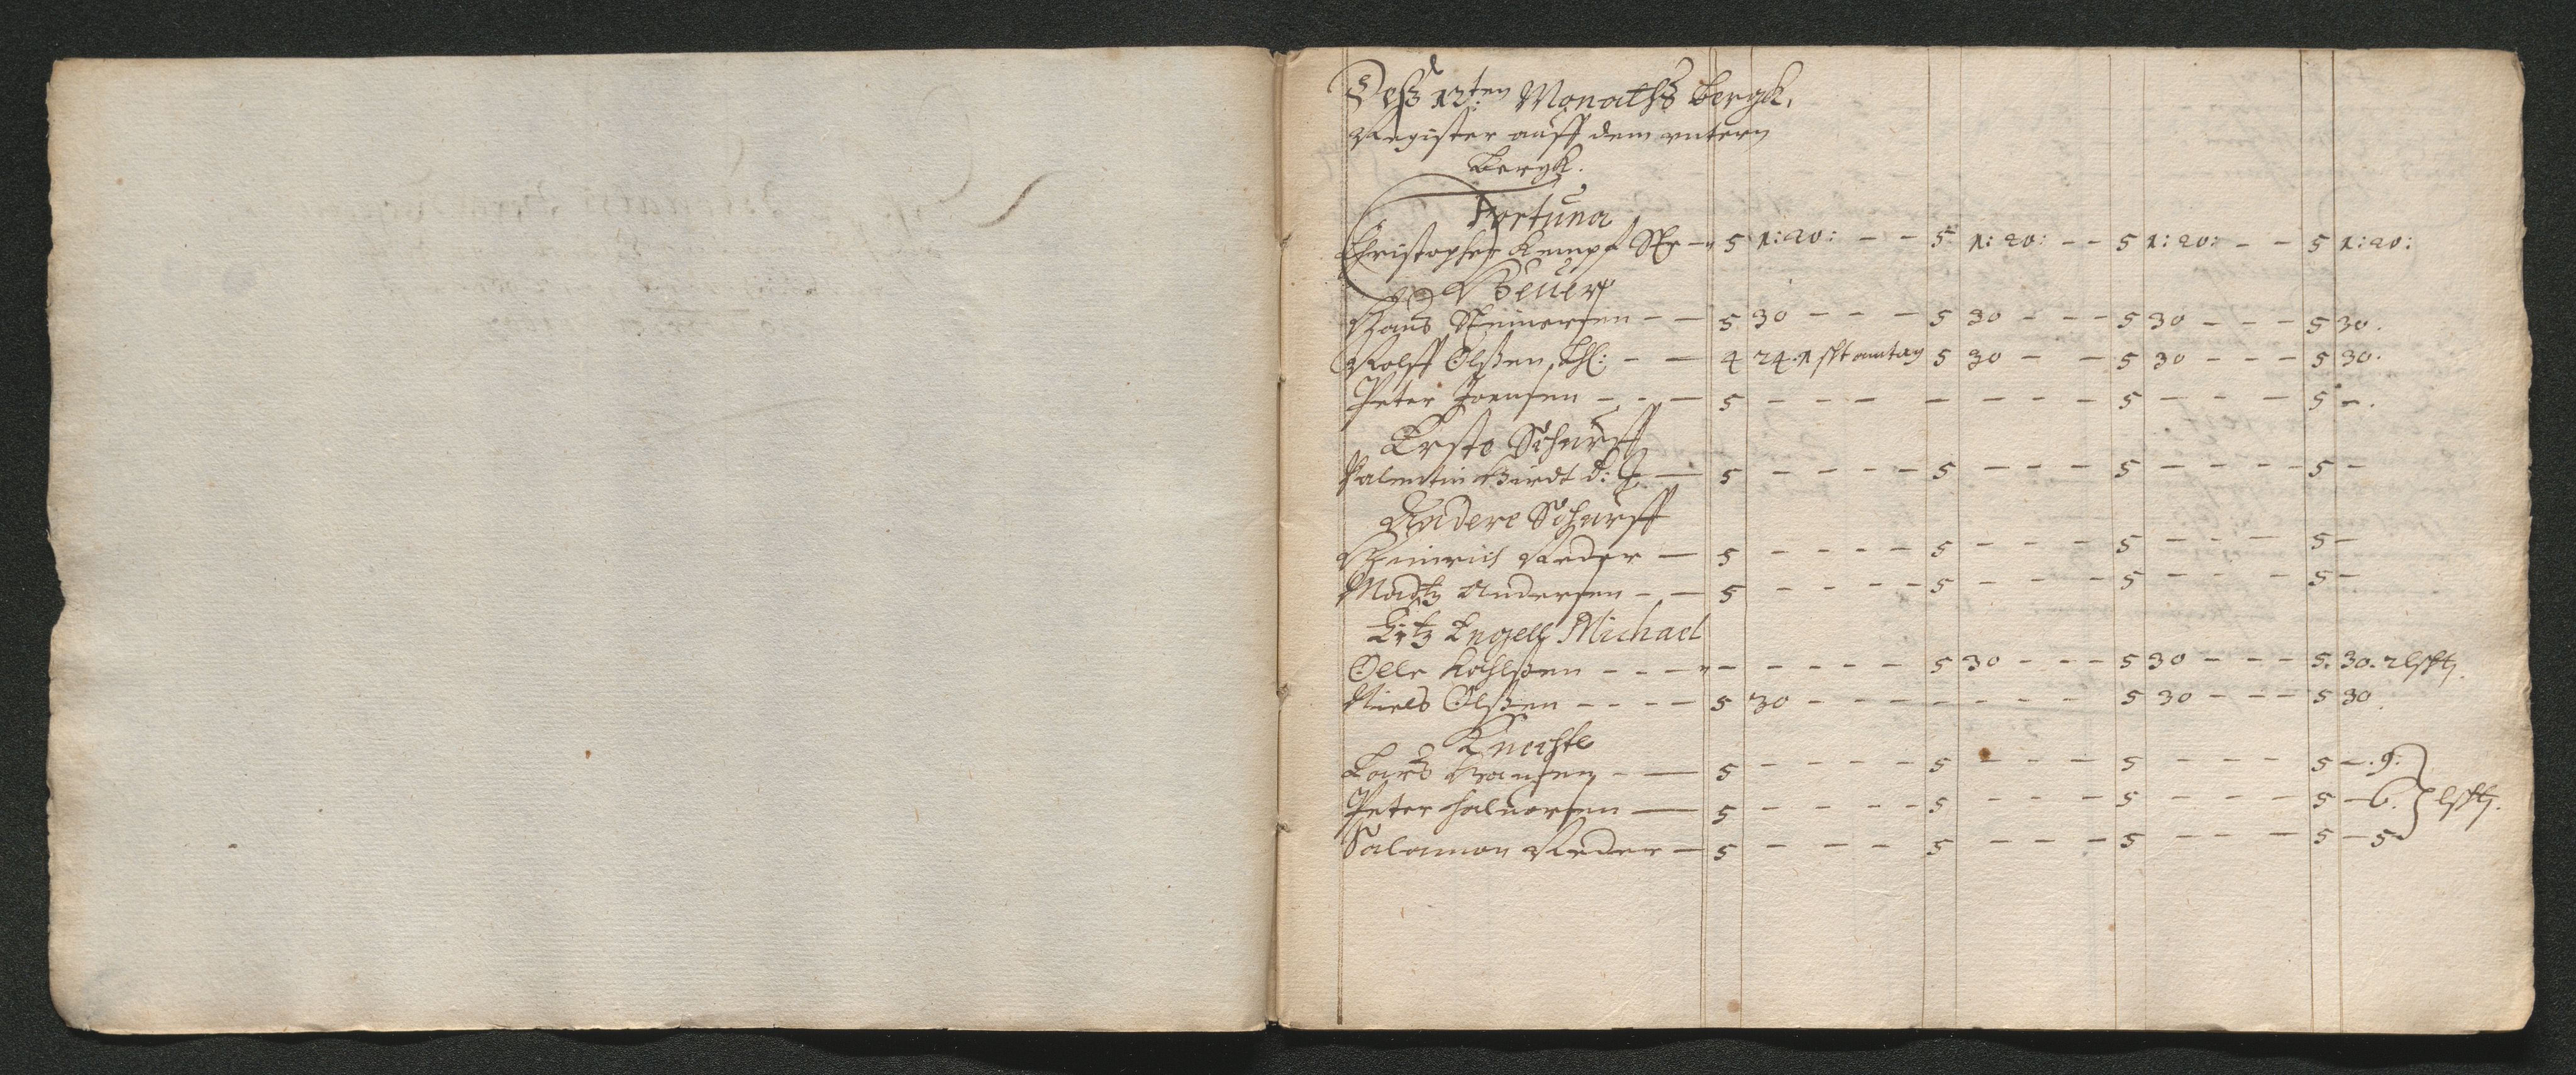 Deß 12ten Monaths Bergk,
Register auff dem untern
Bergk.
Fortuna
Christopher Kempf Str — 5 1:20: – – 5 1:20: – – 5 1:20: – – 5 1:20:
Heüer
Hans Steinersen – – 5 30 – – – 5 30 – – – 5 30 – – – 5 30.
Rolff Olßen, – – 4 24. 1 sft 5 30 – – 5 30 – – – 5 30.
Peter Joensen – – – 5 – – – – – – – 5 – – – 5 –.
Erste Schurff
Valentin Hirdt d: J. — 5 – – – – 5 – – – 5 – – – – 5 –
Andere Schurff
Heinrich Reder — 5 – – – – 5 – – – 5 – – – 5 –
Madtz Andersen – — 5 – – – – 5 – – – 5 – – – 5 –
Litz Engell Michael
Olle Kohlßen – – – – – – – – – 5 30 – – – 5 30 – – – 5. 30. 2 lsfth.
Niels Olßen – – – – 5 30 – – – – – – – 5 30 – – – 5 30.
Knechte
Lars Hansen – — 5 – – – – 5 – – – 5 – – – 5 –. 9.
Peter Halvorsen — 5 – – – – 5 – – – 5 – – – 5 – 6. } lsfth.
Salamon Reder — 5 – – – 5 – – – 5 – – – 5 – 5